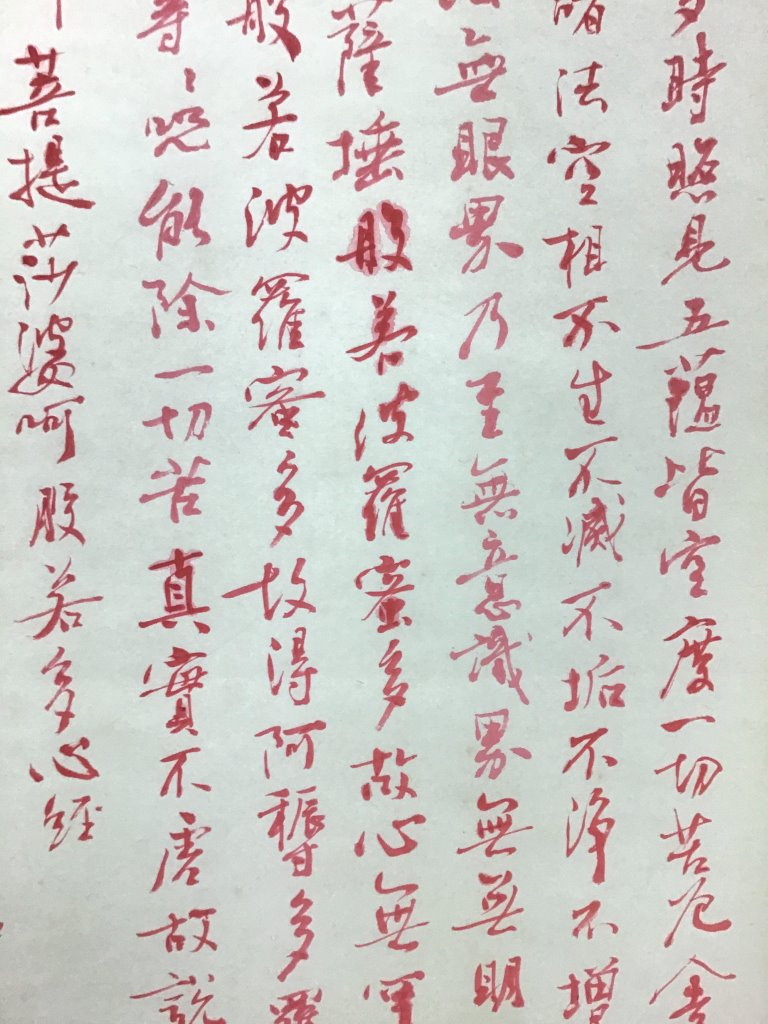 多時照見五蘊皆空度一切苦厄舍
諸法空相不生不滅不垢不淨不增
法無眼界乃至無意識界無無明
薩埵般若波羅蜜多故心無罣
般若波羅蜜多故得阿耨多羅
等〻咒能除一切苦真實不虛故說
菩提莎婆呵般若多心經